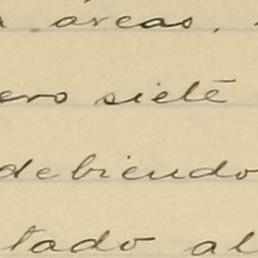 áreas,
ero siete
debiendo
tado al